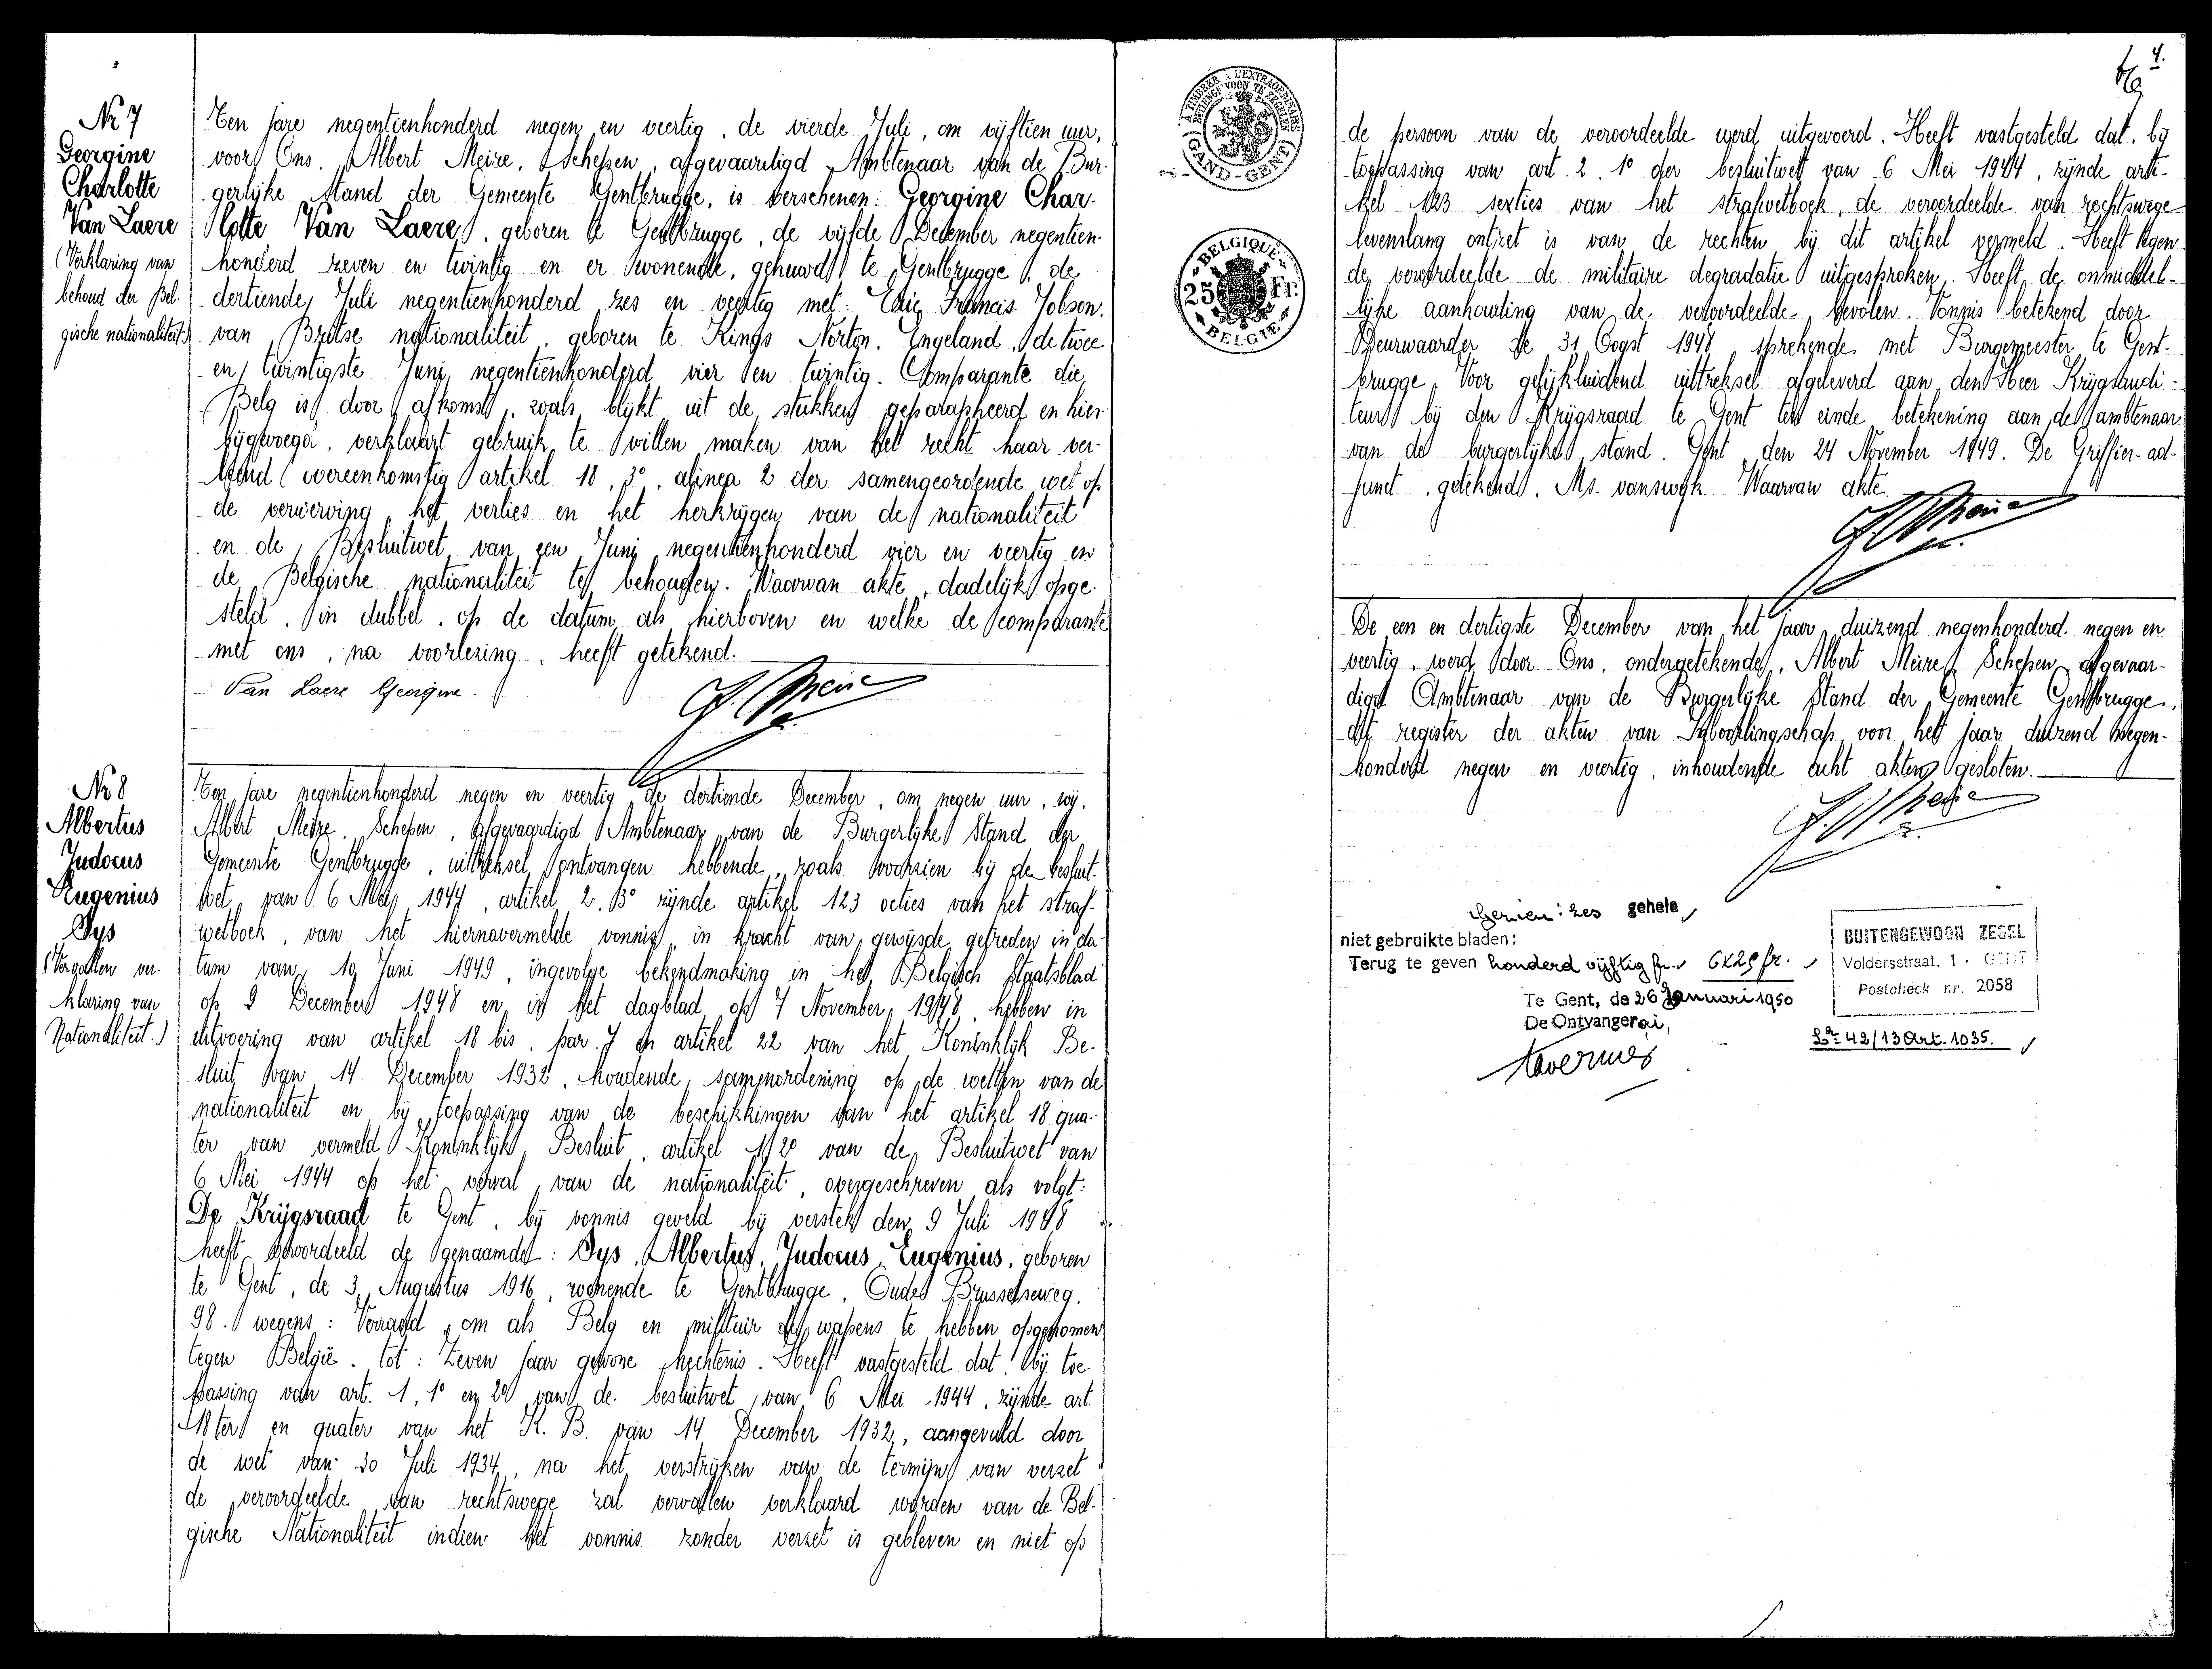 Nr 7
Georgine
Charlotte
Van Laere
(Verklaring van
behoud der Bel-
gische nationaliteit)
Ten jare negentienhonderd negen en veertig, de vierde Juli, om vijftien uur,
voor Ons, Albert Meire, Schepen, afgevaardigd Ambtenaar van de Bur-
gerlijke Stand der Gemeente Gentbrugge, is verschenen: Georgine Char-
lotte Van Laere, geboren te Gentbrugge, de vijfde December negentien-
honderd zeven en twintig en er wonende, gehuwd te Gentbrugge, de
dertiende Juli negentienhonderd zes en veertig met: Eric Francis Jobson,
van Britse nationaliteit, geboren te Kings Norton, Engeland, de twee
en twintigste Juni negentienhonderd vier en twintig. Comparante die
Belg is door afkomst, zoals blijkt uit de stukken geparapheerd en hier-
bijgevoegd, verklaart gebruik te willen maken van het recht haar ver-
leend overeenkomstig artikel 18, 3°, alinea 2 der samengeordende wet op
de verwerving, het verlies en het herkrijgen van de nationaliteit
en de Besluitwet van een Juni negentienhonderd vier en veertig en
de Belgische nationaliteit te behouden. Waarvan akte, dadelijk opge-
steld, in dubbel, op de datum als hierboven en welke de comparante
met ons, na voorlezing, heeft getekend.
Van Laere Georgine.
A. Meire
Nr 8
Albertus
Judocus
Eugenius
Dys
(Vervallen ver-
klaring van
Nationaliteit.)
Ten jare negentienhonderd negen en veertig, de dertiende December, om negen uur, wij,
Albert Meire, Schepen, afgevaardigd Ambtenaar van de Burgerlijke Stand der
Gemeente Gentbrugge, uittreksel ontvangen hebbende, zoals voorzien bij de besluit-
wet van 6 Mei 1944, artikel 2, 3° zijnde artikel 123 octies van het straf-
wetboek, van het hiernavermelde vonnis, in kracht van gewijsde getreden in da-
tum van 19 Juni 1949, ingevolge bekendmaking in het Belgisch Staatsblad
op 9 December 1948 en in het dagblad op 7 November 1948, hebben in
uitvoering van artikel 18 bis, par. 7 en artikel 22 van het Koninklijk Be-
sluit van 14 December 1932, houdende samenordening op de wetten van de
nationaliteit en bij toepassing van de beschikkingen van het artikel 18 qua-
ter van vermeld Koninklijk Besluit, artikel 1, 2° van de Besluitwet van
6 Mei 1944 op het verval van de nationaliteit, overgeschreven als volgt:
De Krijgsraad te Gent, bij vonnis geveld bij verstek den 9 Juli 1948
heeft veroordeeld de genaamde: Dys, Albertus, Judocus, Eugenius, geboren
te Gent, de 3 Augustus 1916, wonende te Gentbrugge, Oude Brusselseweg,
98. wegens: Verraad, om als Belg en militair de wapens te hebben opgenomen
tegen België. tot: Zeven jaar gewone hechtenis. Heeft vastgesteld dat, bij toe-
passing van art. 1, 1° en 2° van de besluitwet van 6 Mei 1944, zijnde art.
18 ter en quater van het K. B. van 14 December 1932, aangevuld door
de wet van 30 Juli 1934, na het verstrijken van de termijn van verzet
de veroordeelde van rechtswege zal vervallen verklaard worden van de Bel-
gische Nationaliteit indien het vonnis zonder verzet is gebleven en niet op
A TIMBRER A L'EXTRAORDINAIRE
BUITENGEWOON TE ZEGELEN
(GAND-GENT)
BELGIQUE
25 Fr.
BELGIE
4.
de persoon van de veroordeelde werd uitgevoerd. Heeft vastgesteld dat, bij
toepassing van art. 2. 1° der besluitwet van 6 Mei 1944, zijnde arti-
kel 123 sexties van het strafwetboek, de veroordeelde van rechtswege
levenslang ontzet is van de rechten bij dit artijkel vermeld. Heeft tegen
de veroordeelde de militaire degradatie uitgesproken. Heeft de onmiddel-
lijke aanhouding van de veroordeelde bevolen. Vonnis betekend door
Deurwaarder de 31 Oogst 1948, sprekende met Burgemeester te Gent-
brugge. Voor gelijkluidend uittreksel afgeleverd aan den Heer Krijgsaudi-
teur bij den Krijgsraad te Gent ten einde betekening aan de ambtenaar
van de burgerlijke stand. Gent, den 24 November 1949. De Griffier-ad-
junct, getekend, Ms. vanswijk. Waarvan akte.
A. Meire
De een en dertigste December van het jaar duizend negenhonderd negen en
veertig, werd door Ons, ondergetekende, Albert Meire, Schepen, afgevaar-
digd Ambtenaar van de Burgerlijke Stand der Gemeente Gentbrugge,
dit register der akten van Inboorlingschap voor het jaar duizend negen-
honderd negen en veertig, inhoudende acht akten, gesloten.
A. Meire
Gezien: zes gehele
niet gebruikte bladen:
Terug te geven honderd vijftig fr. 6x25 fr.
Te Gent, de 26 Januari 1950
De Ontvanger ai,
BUITENGEWOON ZEGEL
Voldersstraat, 1 - GENT
Postcheck nr. 2058
42/13 Art. 1035.